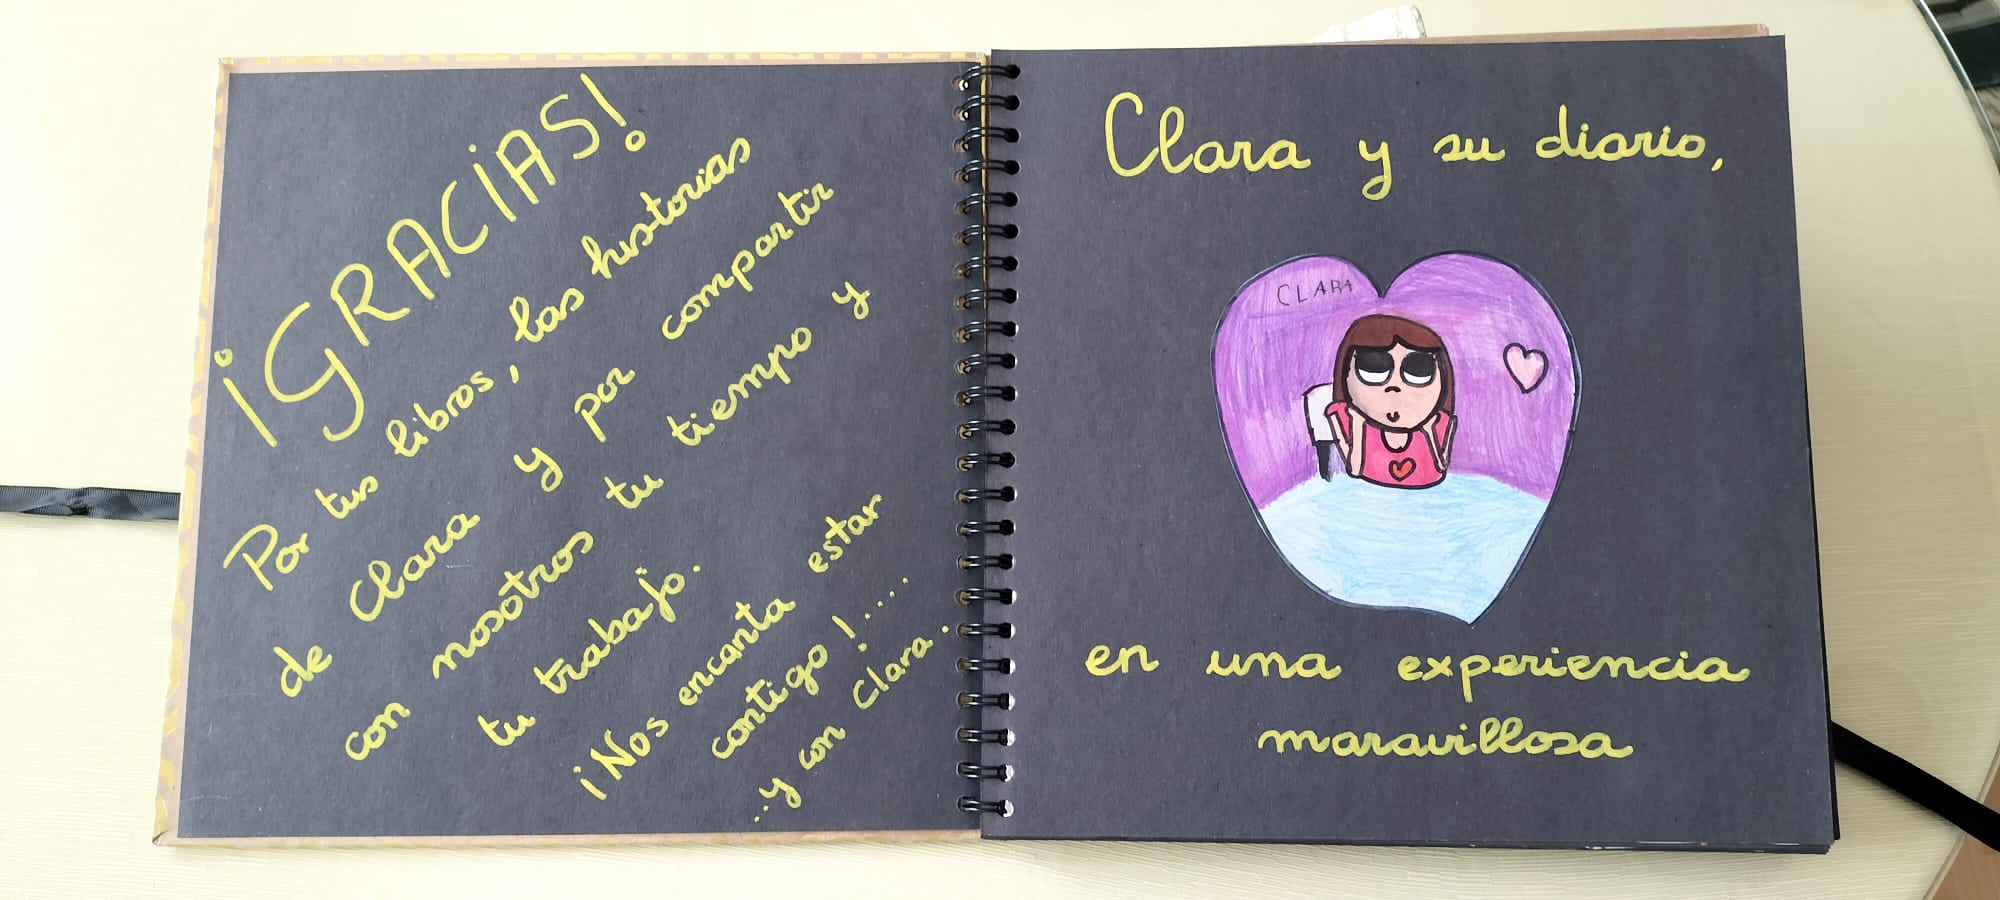 ¡GRACIAS!
Por tus libros, las historias
de Clara y por compartir
con nosotros tu tiempo y
tu trabajo.
¡Nos encanta estar
contigo!....
..y con Clara.
Clara y su diario,
CLARA
en una experiencia
maravillosa